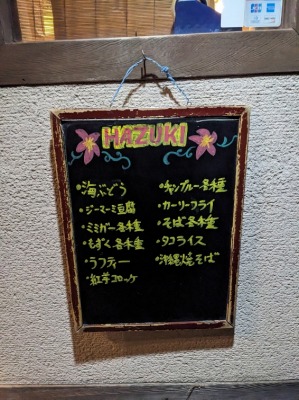 HAZUKI
・海ぶどう
・ジーマーミ豆腐
・ミミガー各種
・もずく各種
・ラフティー
・紅芋コロッケ
・チャンプルー各種
・カーリーフライ
・そば各種
・タコライス
・沖縄焼そば
JCB